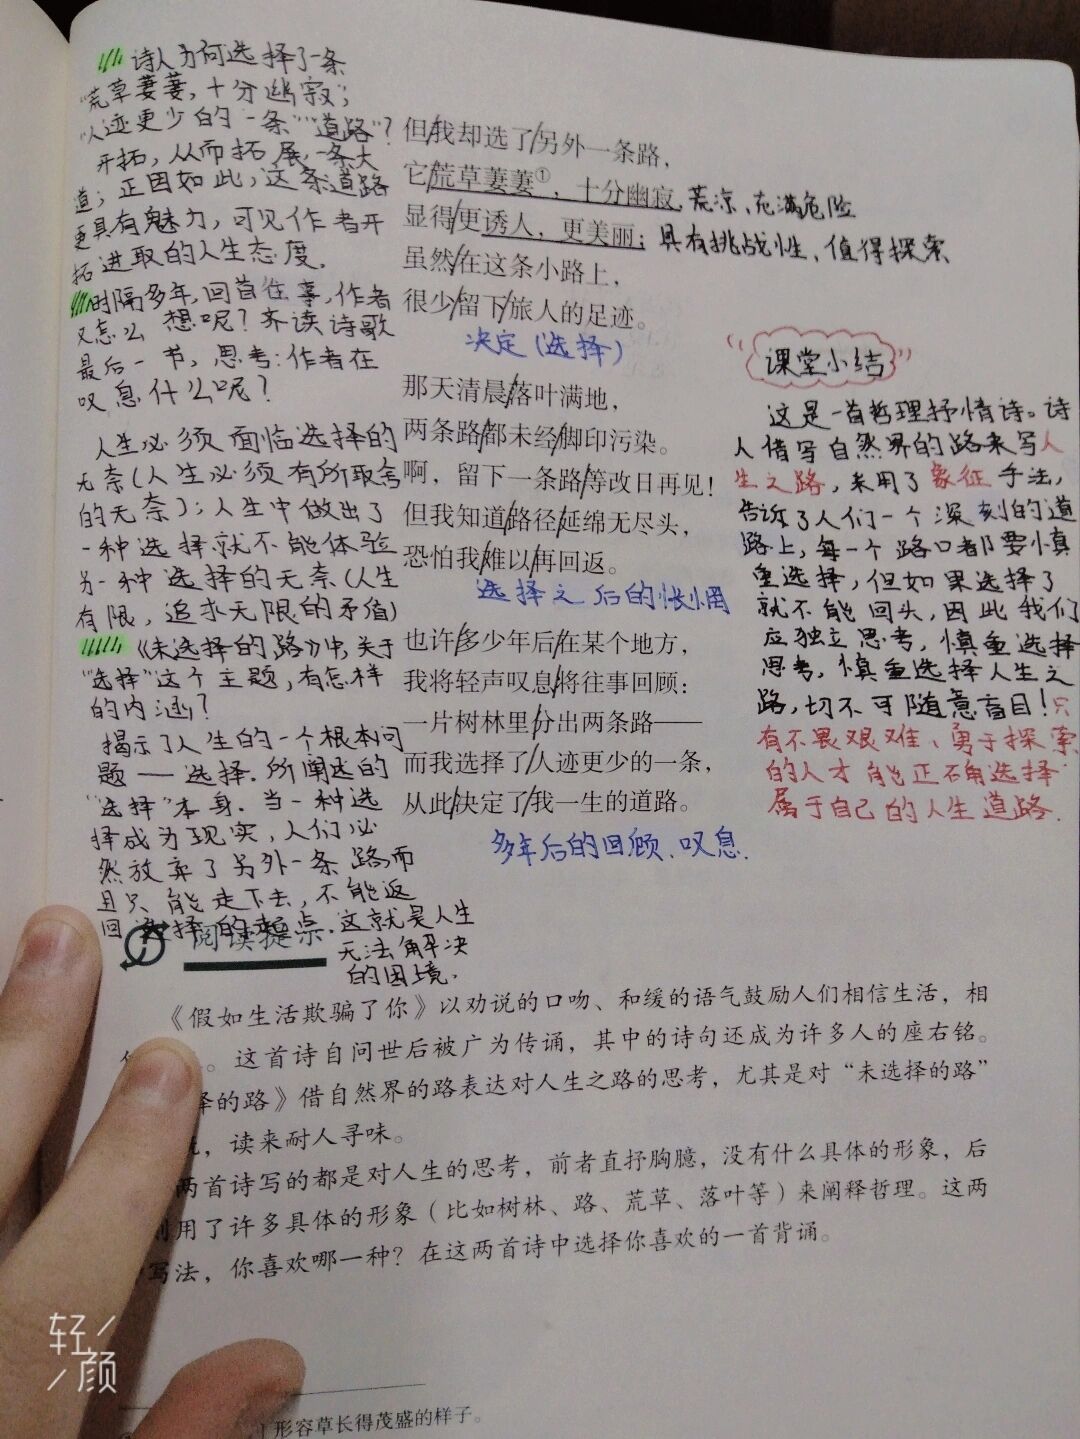 诗人为何选择了一条
“荒草萋萋,十分幽寂;
人迹更少的一条”“道路”?
开拓,从而拓展一条大
道;正因如此,这条道路
更具有魅力,可见作者开
拓进取的人生态度.
时隔多年,回首往事,作者
又怎么想呢?齐读诗歌
最后一节,思考:作者在
叹息什么呢?
人生必须面临选择的
无奈(人生必须有所取舍
的无奈);人生中做出了
一种选择就不能体验
另一种选择的无奈(人生
有限,追求无限的矛盾)
《未选择的路》中,关于
“选择”这个主题,有怎样
的内涵?
揭示了人生的一个根本问
题——选择.所阐述的
“选择”本身.当一种选
择成为现实,人们必
然放弃了另外一条路,而
且只能走下去,不能返
回选择的起点.这就是人生
无法解决
的困境.
但/我却选了/另外一条路,
它/荒草萋萋①,十分幽寂,荒凉、充满危险
显得/更诱人,更美丽;具有挑战性、值得探索
虽然/在这条小路上,
很少/留下/旅人的足迹。
决定(选择)
那天清晨/落叶满地,
两条路/都未经/脚印污染。
啊,留下一条路/等改日再见!
但我知道/路径/延绵无尽头,
恐怕我/难以/再回返。
选择之后的怅惘
也许/多少年后/在某个地方,
我将轻声叹息/将往事回顾:
一片树林里/分出两条路——
而我选择了/人迹更少的一条,
从此/决定了/我一生的道路。
多年后的回顾、叹息.
“课堂小结”
这是一首哲理抒情诗。诗
人借写自然界的路来写人
生之路,采用了象征手法,
告诉了人们一个深刻的道
路上,每一个路口都要慎
重选择,但如果选择了
就不能回头,因此我们
应独立思考,慎重选择
思考,慎重选择人生之
路,切不可随意盲目!只
有不畏艰难、勇于探索
的人才能正确选择
属于自己的人生道路.
阅读提示
《假如生活欺骗了你》以劝说的口吻、和缓的语气鼓励人们相信生活,相
。这首诗自问世后被广为传诵,其中的诗句还成为许多人的座右铭。
择的路》借自然界的路表达对人生之路的思考,尤其是对“未选择的路”
,读来耐人寻味。
两首诗写的都是对人生的思考,前者直抒胸臆,没有什么具体的形象,后
用了许多具体的形象(比如树林、路、荒草、落叶等)来阐释哲理。这两
写法,你喜欢哪一种?在这两首诗中选择你喜欢的一首背诵。
形容草长得茂盛的样子。
轻颜